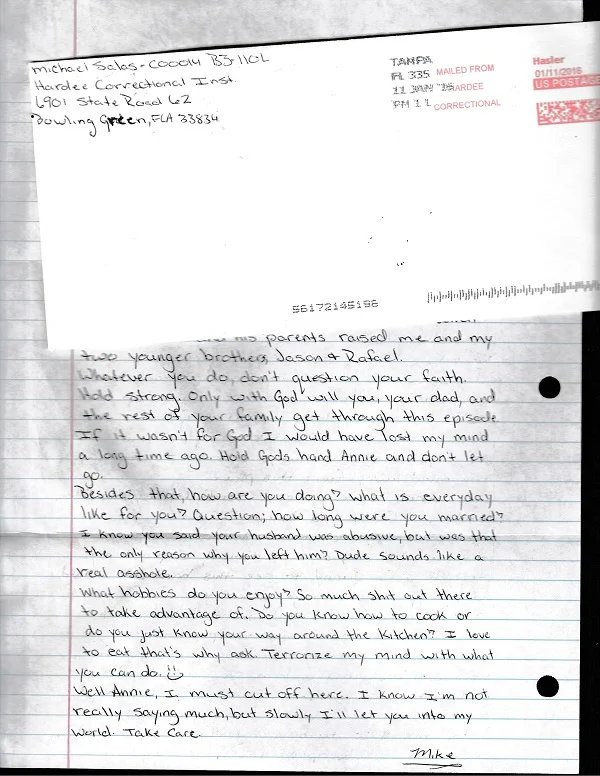 Michael Salas - C00014 B3-110L
Hardee Correctional Inst.
6901 State Road 62
Bowling Green, FLA 33834
TAMPA
FL 335
11 JAN '16
PM 1 L
MAILED FROM
HARDEE
CORRECTIONAL
Hasler
01/11/2016
US POSTAGE
56172145196
his parents raised me and my
two younger brothers, Jason & Rafael.
Whatever you do, don't question your faith.
Hold strong. Only with God will you, your dad, and
the rest of your family get through this episode
If it wasn't for God I would have lost my mind
a long time ago. Hold Gods hand Annie and don't let
go.
Besides that, how are you doing? What is everyday
like for you? Question; how long were you married?
I know you said your husband was abusive, but was that
the only reason why you left him? Dude sounds like a
real asshole.
What hobbies do you enjoy? So much shit out there
to take advantage of. Do you know how to cook or
do you just know your way around the kitchen? I love
to eat that's why ask. Terrorize my mind with what
you can do.
Well Annie, I must cut off here. I know I'm not
really saying much, but slowly I'll let you into my
world. Take Care.
Mike